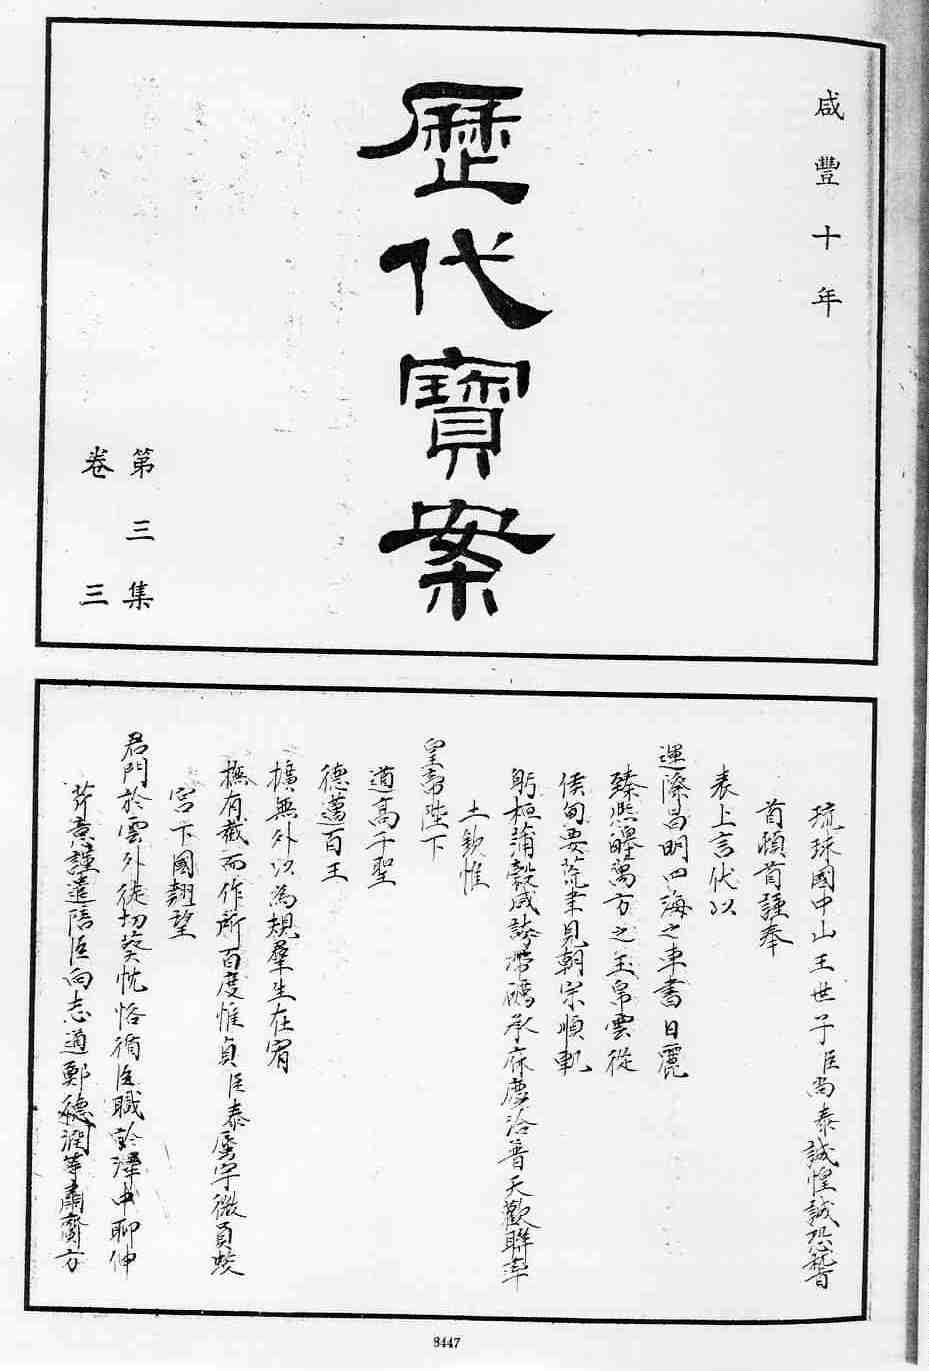 咸豐十年
歷代寶案
第三集
卷三
琉球國中山王世子臣尚泰誠惶誠恐稽
首頓首謹奉
表上言伏以
運際昌明四海之車書日麗
臻熙皥萬方之玉帛雲從
侯甸要荒聿見朝宗順軌
躬桓蒲穀咸誇帶礪承庥慶洽普天歡聯率
土欽惟
皇帝陛下
道高千聖
德邁百王
擴無外以為規羣生在宥
撫有截而作所百度惟貞臣泰蜃宇微員蛟
宮下國翹望
君門於雲外徒切葵忱恪循臣職於澤中聊伸
芹意謹遣陪臣向志道鄭德潤等肅齎方
8447